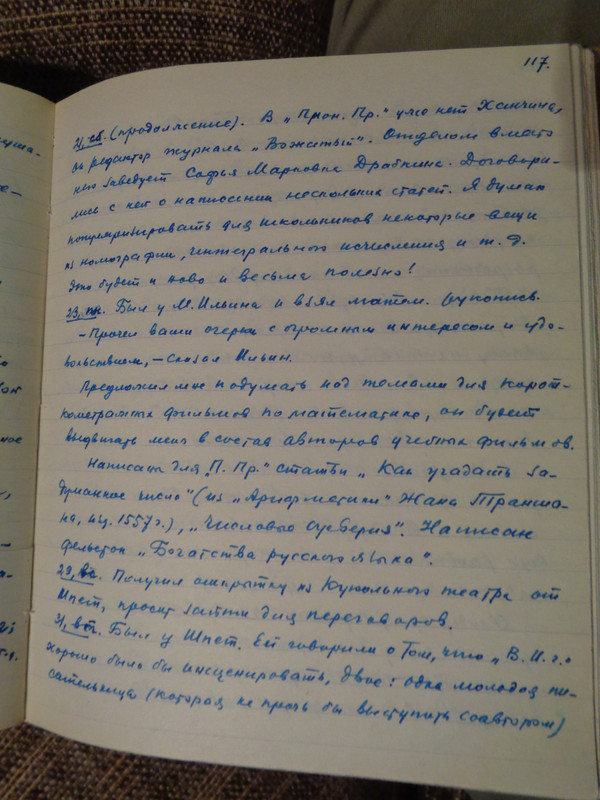 117.
21, сб. (продолжение). В „Пион. Пр.“ уже нет Ханчина,
он редактор журнала „Вожатый“. Отделом вместо
него заведует Софья Марковна Драбкина. Договори-
лись с ней о написании нескольких статей. Я думаю
популяризировать для школьников некоторые вещи
из номографии, интегрального исчисления и т. д.
Это будет и ново и весьма полезно!
23, пн. Был у М. Ильина и взял матем. рукопись.
– Прочел ваши очерки с огромным интересом и удо-
вольствием, – сказал Ильин.
Предложил мне подумать над темами для корот-
кометражных фильмов по математике, он будет
выдвигать меня в состав авторов учебных фильмов.
Написаны для „П. Пр.“ статьи „Как угадать за-
думанное число“ (из „Арифметики“ Жана Транша-
на, изд. 1557 г.), „Числовые суеверия“. Написан
фельетон „Богатства русского языка“.
29, вс. Получил открытку из Кукольного театра от
Шпет, просит зайти для переговоров.
31, вт. Был у Шпет. Ей говорили о том, что „В. И. г.“
хорошо было бы инсценировать, двое: одна молодая пи-
сательница (которая не прочь бы выступить соавтором)
уша-
е-
ной
ное